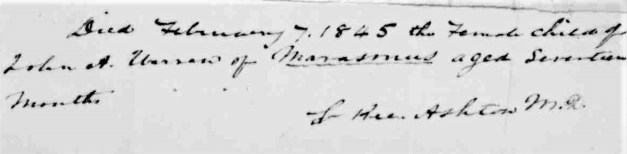 Died February 7. 1845 the Female child of
John A. Warren of Marasmus aged Seventeen
Months
Ashton M.D.